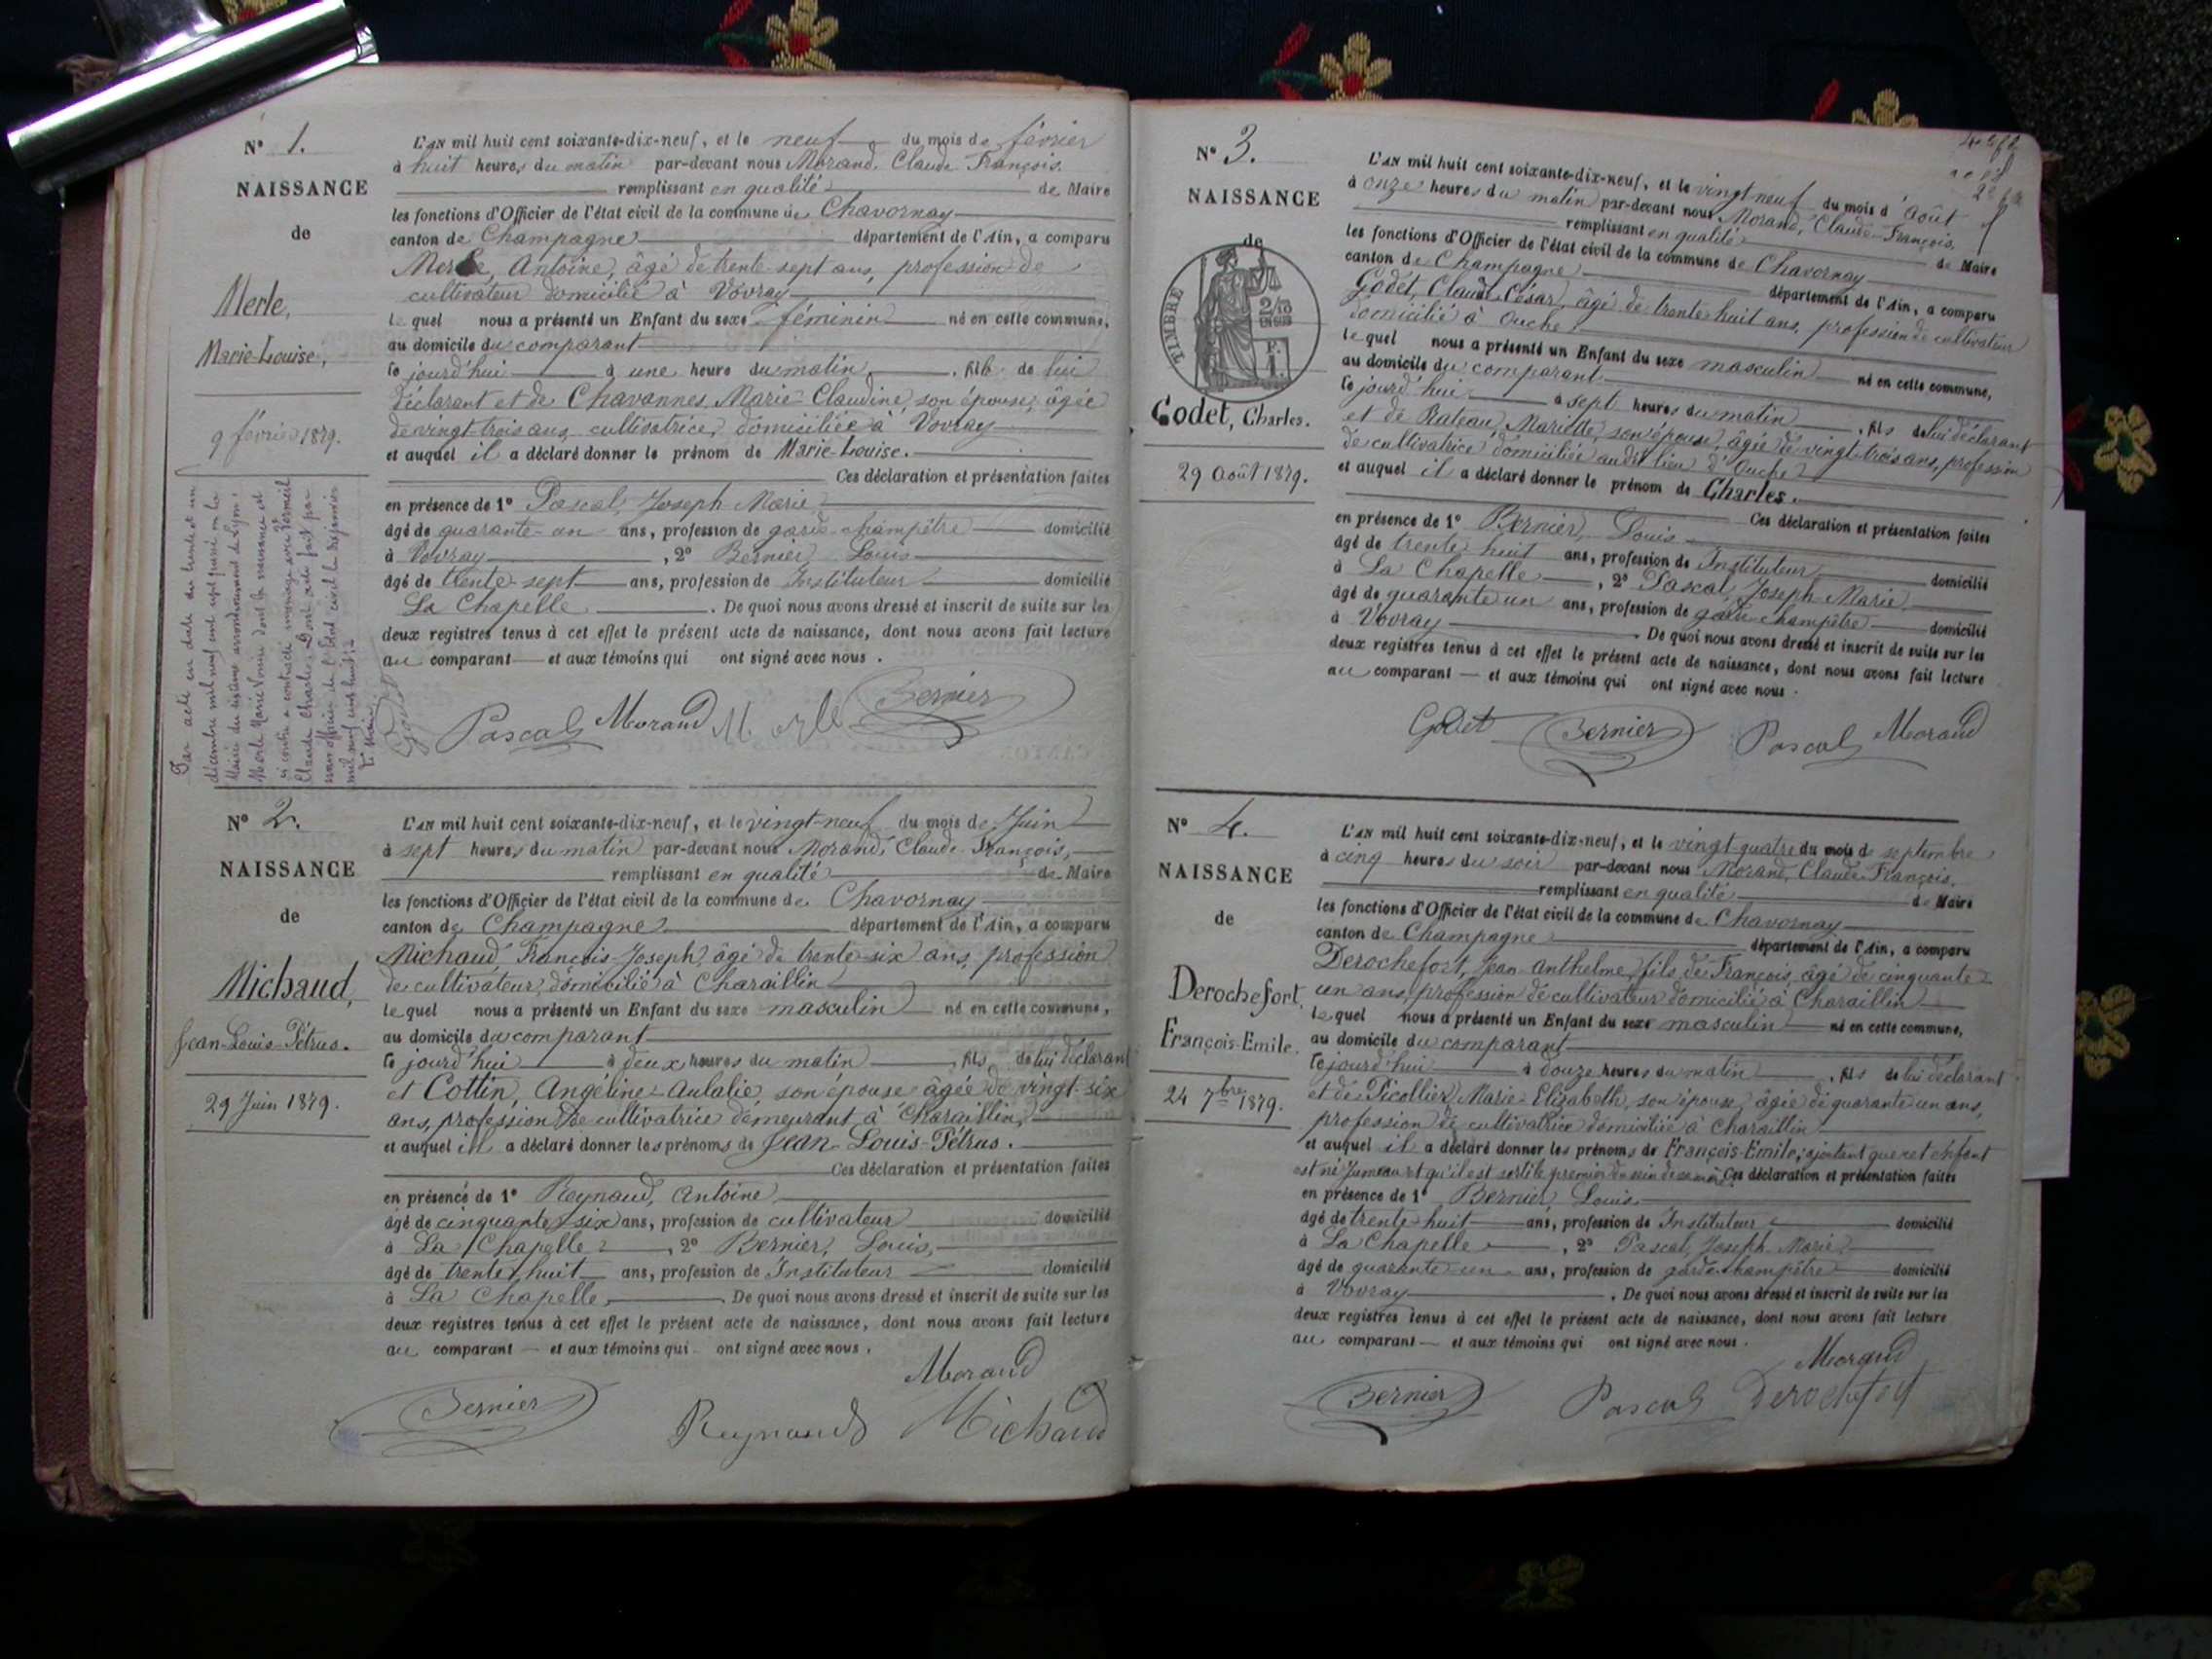 N° 1.
NAISSANCE
de
Merle,
Marie-Louise,
9 février 1879.
Par acte en date du trente et un
décembre mil neuf cent sept passé en la
Mairie du sixième arrondissement de Lyon,
Merle Marie Louise dont la naissance est
ci contre a contracté mariage avec
Claude Charles. Dont acte fait par
nous officier de l'état civil le
mil neuf cent huit.
Le Maire
L'AN mil huit cent soixante-dix-neuf, et le neuf du mois de février
à huit heures du matin par-devant nous Morand, Claude François,
remplissant en qualité de Maire
les fonctions d'Officier de l'état civil de la commune de Chavornay
canton de Champagne département de l'Ain, a comparu
Merle, Antoine, âgé de trente-sept ans, profession de
cultivateur domicilié à Vovray
lequel nous a présenté un Enfant du sexe féminin né en cette commune,
au domicile du comparant
cejourd'hui à une heure du matin, fille de lui
déclarant et de Chavannes, Marie-Claudine, son épouse, âgée
de vingt-trois ans, cultivatrice, domiciliée à Vovray
et auquel il a déclaré donner le prénom de Marie-Louise.
Ces déclaration et présentation faites
en présence de 1° Pascal, Joseph Marie
âgé de quarante-un ans, profession de garde-champêtre domicilié
à Vovray, 2° Bernier, Louis
âgé de trente-sept ans, profession de Instituteur domicilié
La Chapelle. De quoi nous avons dressé et inscrit de suite sur les
deux registres tenus à cet effet le présent acte de naissance, dont nous avons fait lecture
au comparant et aux témoins qui ont signé avec nous.
Pascal Morand Merle Bernier
N° 2.
NAISSANCE
de
Michaud,
Jean-Louis-Pétrus.
29 Juin 1879.
L'AN mil huit cent soixante-dix-neuf, et le vingt-neuf du mois de Juin
à sept heures du matin par-devant nous Morand, Claude-François,
remplissant en qualité de Maire
les fonctions d'Officier de l'état civil de la commune de Chavornay
canton de Champagne département de l'Ain, a comparu
Michaud, François-Joseph, âgé de trente-six ans, profession
de cultivateur, domicilié à Charaillin
lequel nous a présenté un Enfant du sexe masculin né en cette commune,
au domicile du comparant
cejourd'hui à deux heures du matin, fils de lui déclarant
et Cottin, Angéline-Aulalie, son épouse âgée de vingt-six
ans, profession de cultivatrice demeurant à Charaillin,
et auquel il a déclaré donner les prénoms de Jean Louis-Pétrus.
Ces déclaration et présentation faites
en présence de 1° Reynaud, Antoine
âgé de cinquante-six ans, profession de cultivateur domicilié
à La Chapelle, 2° Bernier, Louis,
âgé de trente-huit ans, profession de Instituteur domicilié
à La Chapelle. De quoi nous avons dressé et inscrit de suite sur les
deux registres tenus à cet effet le présent acte de naissance, dont nous avons fait lecture
au comparant et aux témoins qui ont signé avec nous.
Morand
Bernier Reynaud Michaud
N° 3.
NAISSANCE
de
TIMBRE
2/10
EN SUS
Godet, Charles.
29 Août 1879.
L'AN mil huit cent soixante-dix-neuf, et le vingt-neuf du mois d'août
à onze heures du matin par-devant nous Morand, Claude-François,
remplissant en qualité de Maire
les fonctions d'Officier de l'état civil de la commune de Chavornay
canton de Champagne département de l'Ain, a comparu
Godet, Claude-César, âgé de trente-huit ans, profession de cultivateur
domicilié à Ouche
lequel nous a présenté un Enfant du sexe masculin né en cette commune,
au domicile du comparant
cejourd'hui à sept heures du matin, fils de lui déclarant
et de Rateau, Mariette, son épouse, âgée de vingt-trois ans, profession
de cultivatrice domiciliée audit lieu d'Ouche
et auquel il a déclaré donner le prénom de Charles.
Ces déclaration et présentation faites
en présence de 1° Bernier, Louis
âgé de trente-huit ans, profession de Instituteur domicilié
à La Chapelle, 2° Pascal, Joseph-Marie
âgé de quarante-un ans, profession de garde-champêtre domicilié
à Vovray. De quoi nous avons dressé et inscrit de suite sur les
deux registres tenus à cet effet le présent acte de naissance, dont nous avons fait lecture
au comparant et aux témoins qui ont signé avec nous.
Godet Bernier Pascal Morand
N° 4.
NAISSANCE
de
Derochefort,
François-Emile.
24 7bre 1879.
L'AN mil huit cent soixante-dix-neuf, et le vingt-quatre du mois de septembre
à cinq heures du soir par-devant nous Morand, Claude-François,
remplissant en qualité de Maire
les fonctions d'Officier de l'état civil de la commune de Chavornay
canton de Champagne département de l'Ain, a comparu
Derochefort, Jean-Anthelme, fils de François, âgé de cinquante-
un ans, profession de cultivateur domicilié à Charaillin
lequel nous a présenté un Enfant du sexe masculin né en cette commune,
au domicile du comparant
cejourd'hui à douze heures du matin, fils de lui déclarant
et de Picollier, Marie-Elisabeth, son épouse, âgée de quarante-un ans,
profession de cultivatrice domiciliée à Charaillin
et auquel il a déclaré donner les prénoms de François-Emile, ajoutant que cet enfant
est né Jumeau et qu'il est sorti le premier du sein de sa mère. Ces déclaration et présentation faites
en présence de 1° Bernier, Louis
âgé de trente-huit ans, profession de Instituteur domicilié
à La Chapelle, 2° Pascal, Joseph-Marie
âgé de quarante-un ans, profession de garde-champêtre domicilié
à Vovray. De quoi nous avons dressé et inscrit de suite sur les
deux registres tenus à cet effet le présent acte de naissance, dont nous avons fait lecture
au comparant et aux témoins qui ont signé avec nous.
Morand
Bernier Pascal Derochefort